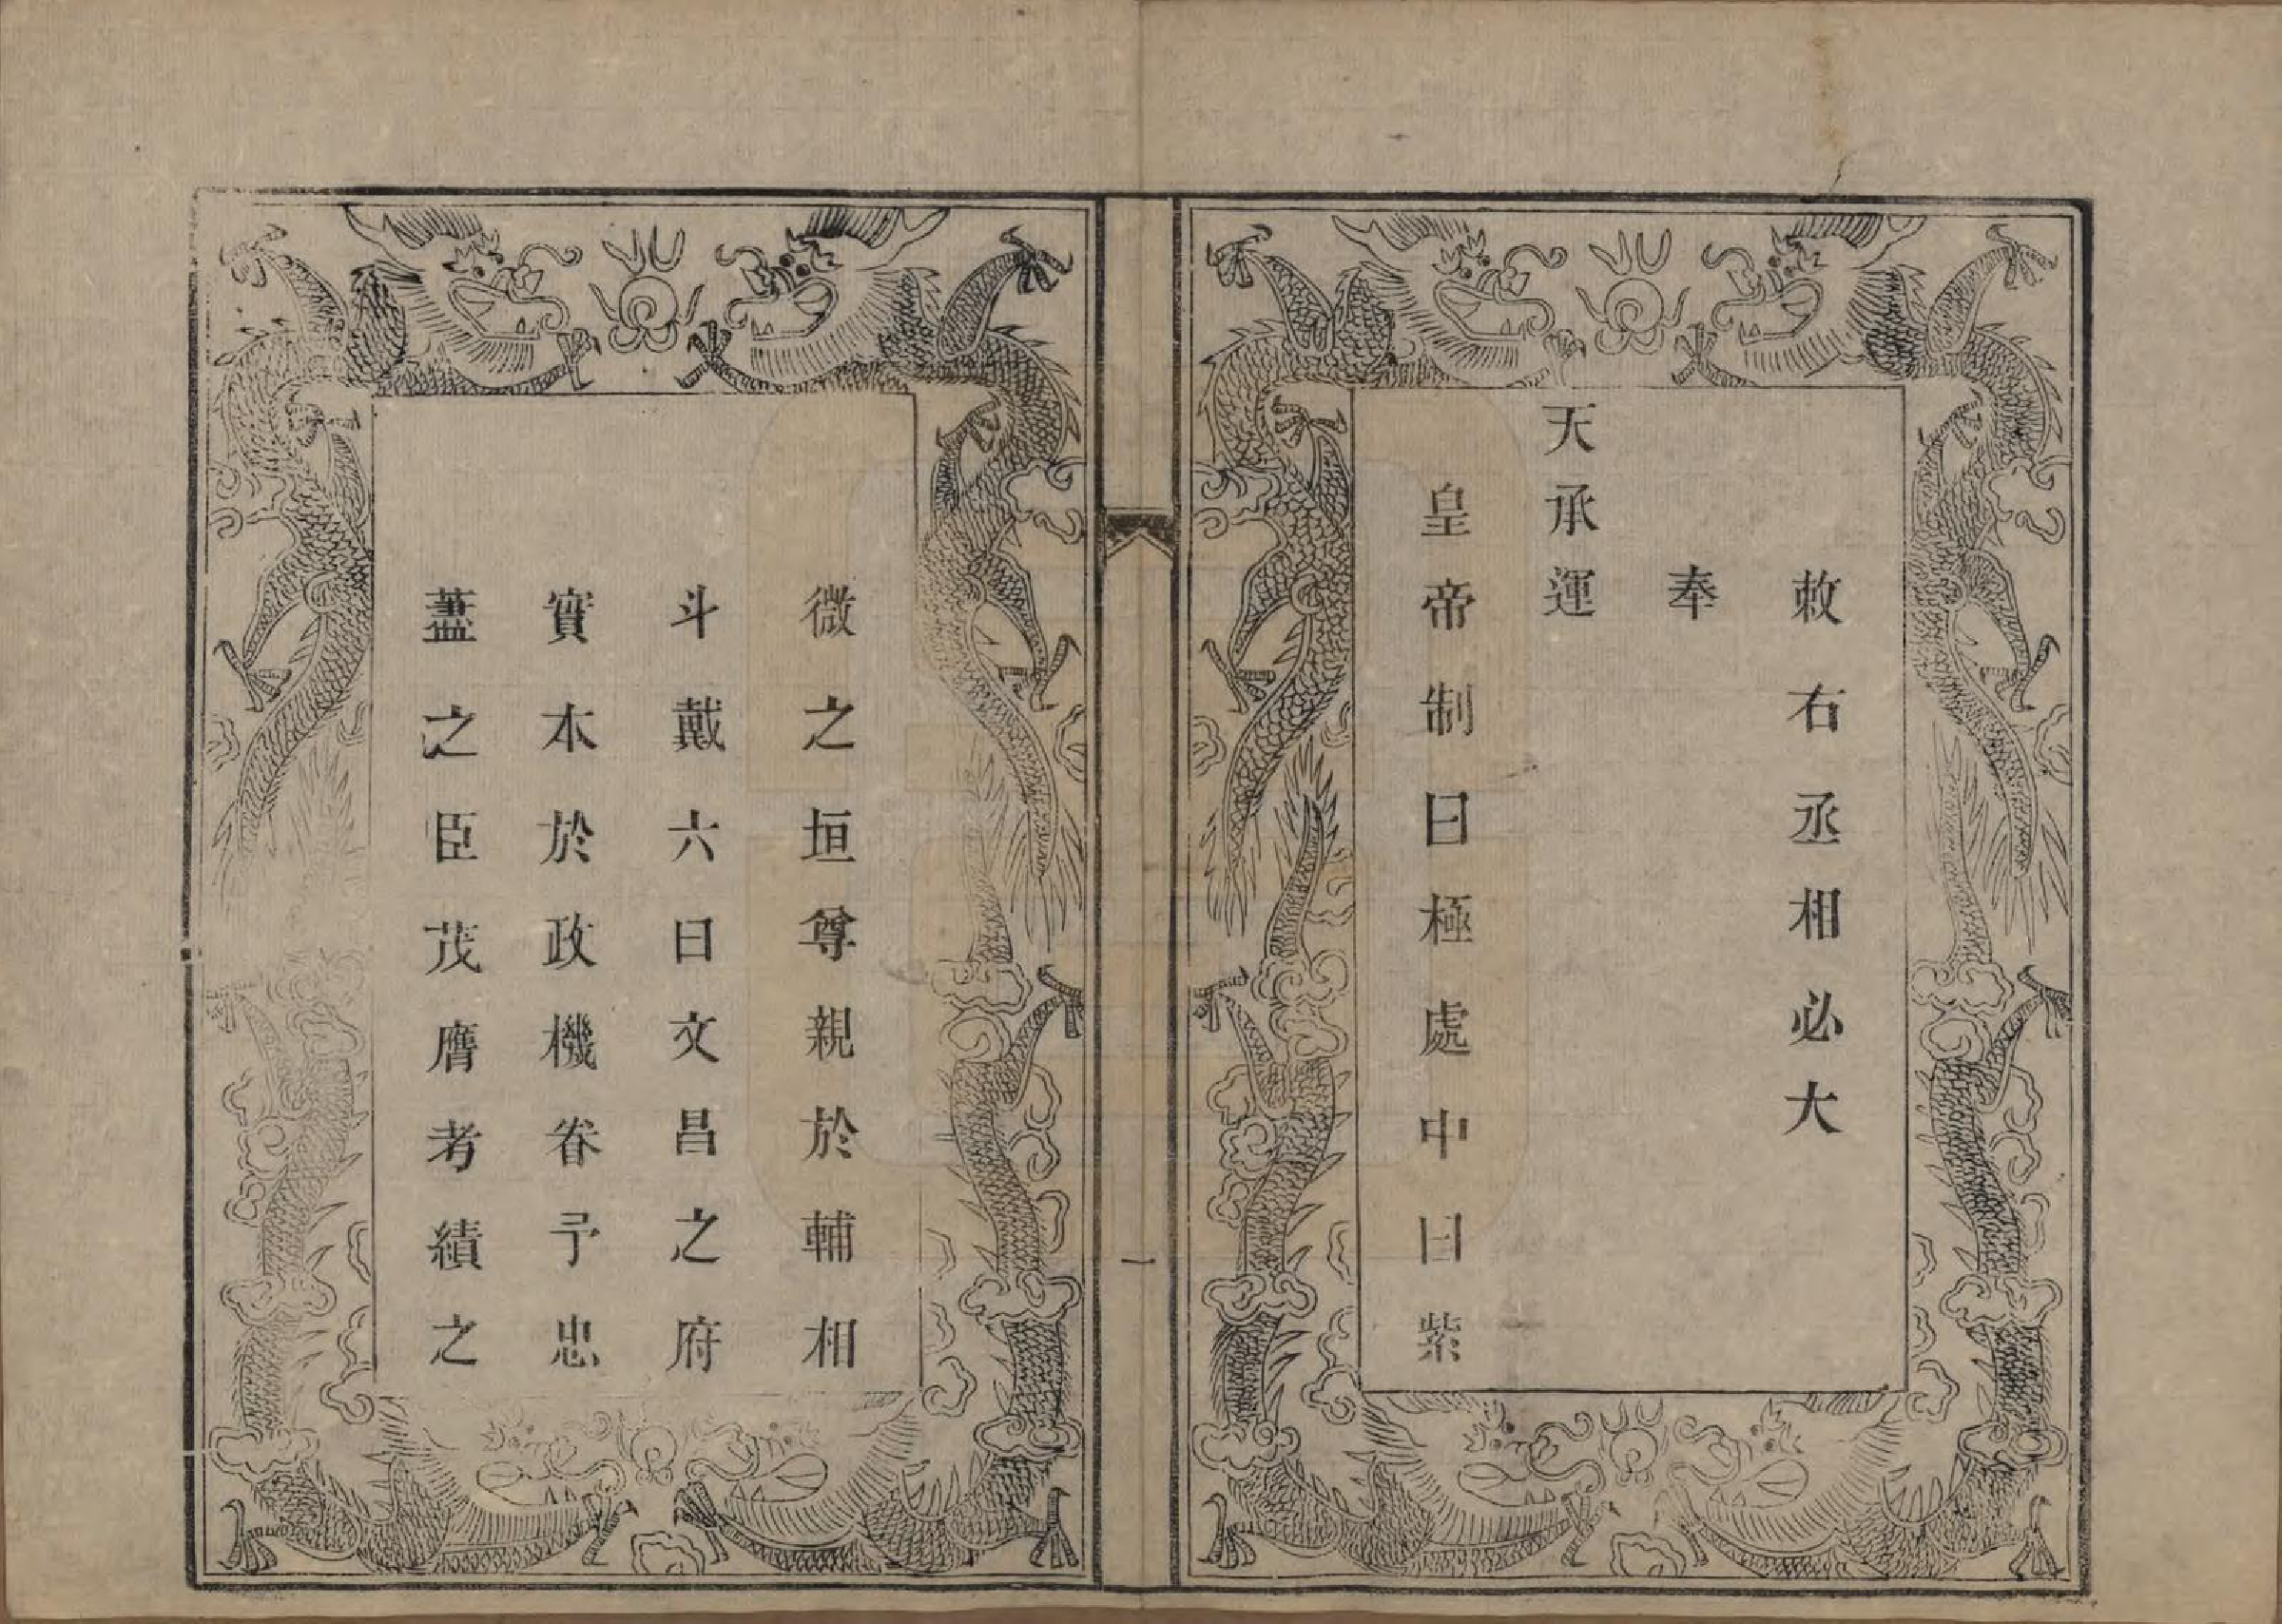 敕右丞相必大
奉
天承運
皇帝制曰極處中曰紫
微之垣尊親於輔相
斗戴六曰文昌之府
實本於政機眷予忠
藎之臣茂膺考績之
一